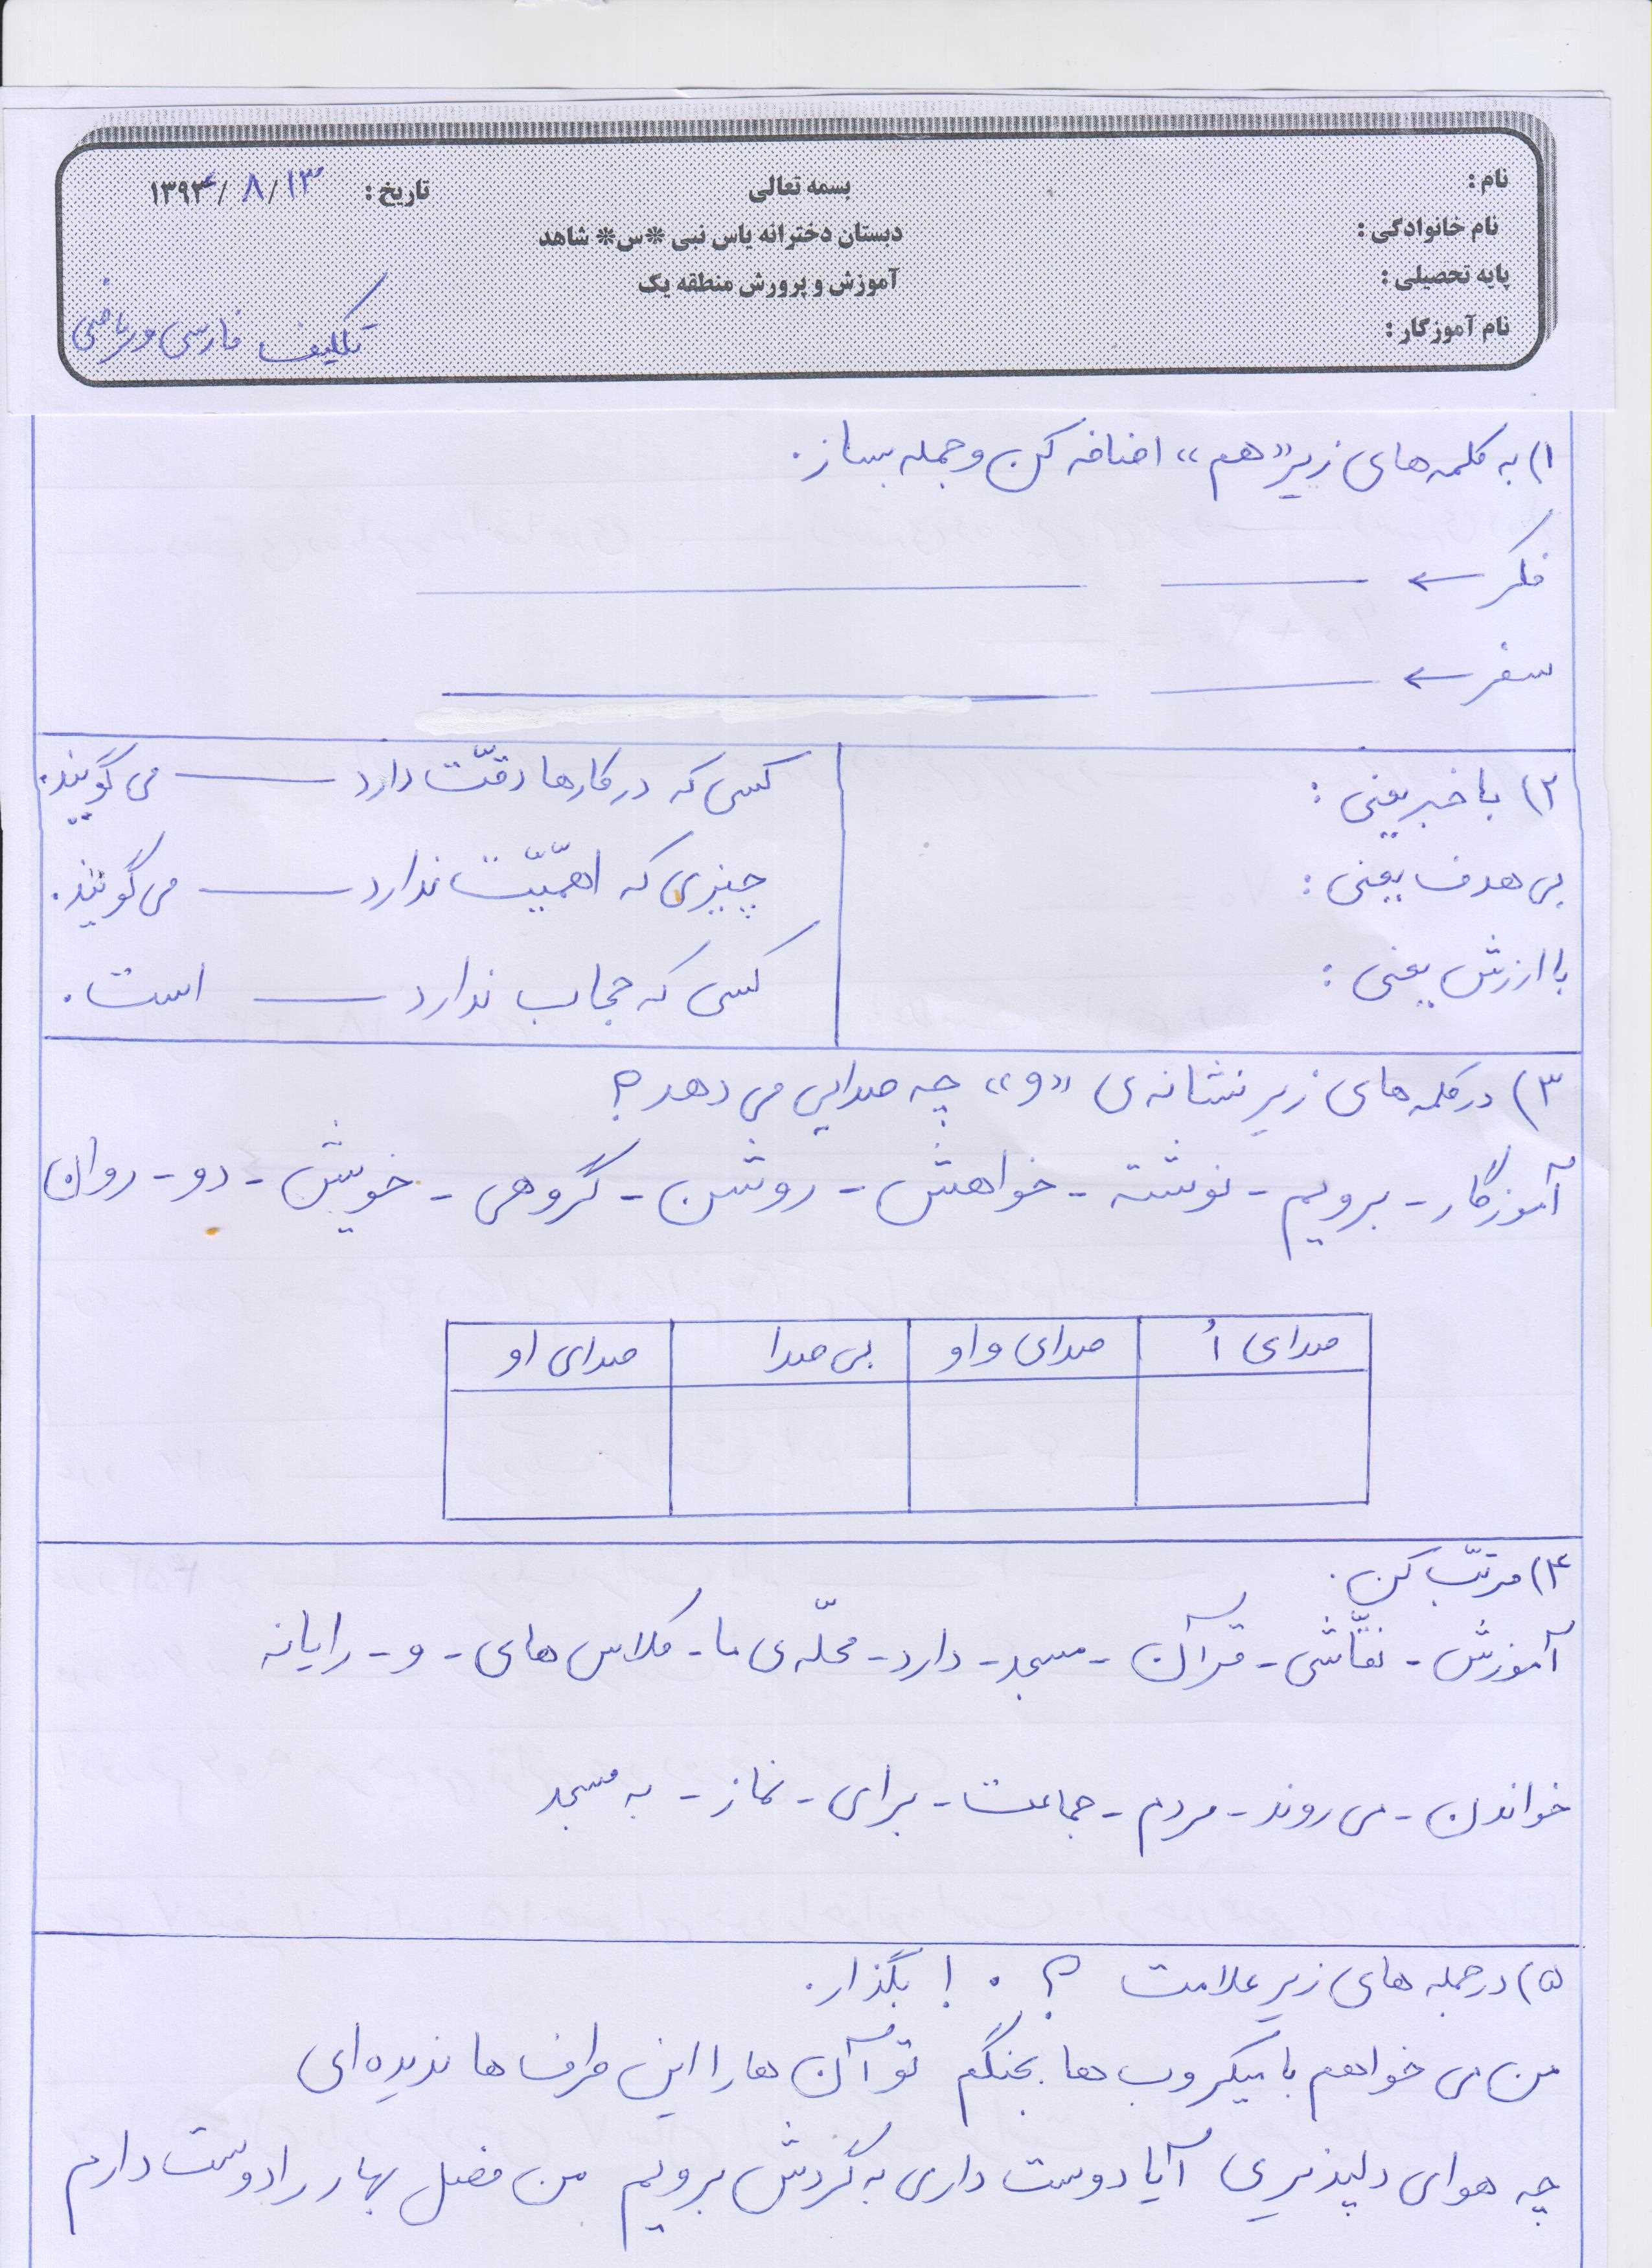 نام :
نام خانوادگی :
پایه تحصیلی :
نام آموزگار :
بسمه تعالی
دبستان دخترانه یاس نبی *س* شاهد
آموزش و پرورش منطقه یک
تاریخ : ۱۳۹۴/۸/۱۳
تکلیف فارسی و ریاضی
۱) به کلمه های زیر «هم» اضافه کن و جمله بساز.
فکر ←
سفر ←
۲) با خبر یعنی :
بی هدف یعنی :
با ارزش یعنی :
کسی که در کارها دقّت دارد ـــــ می گویند.
چیزی که اهمّیّت ندارد ـــــ می گویند.
کسی که حجاب ندارد ـــــ است.
۳) در کلمه های زیر نشانه ی «و» چه صدایی می دهد؟
آموزگار - برویم - نوشته - خواهش - روشن - گروهی - خویش - دو - روان
صدای اُ | صدای واو | بی صدا | صدای او
۴) مرتّب کن.
آموزش - نقّاشی - قرآن - مسجد - دارد - محلّه ی ما - کلاس های - و - رایانه
خواندن - می روند - مردم - جماعت - برای - نماز - به مسجد
۵) در جمله های زیر علامت ؟ . ! بگذار.
من می خواهم با میکروب ها بجنگم تو آن ها را این طرف ها ندیده ای
چه هوای دلپذیری آیا دوست داری به گردش برویم من فصل بهار را دوست دارم